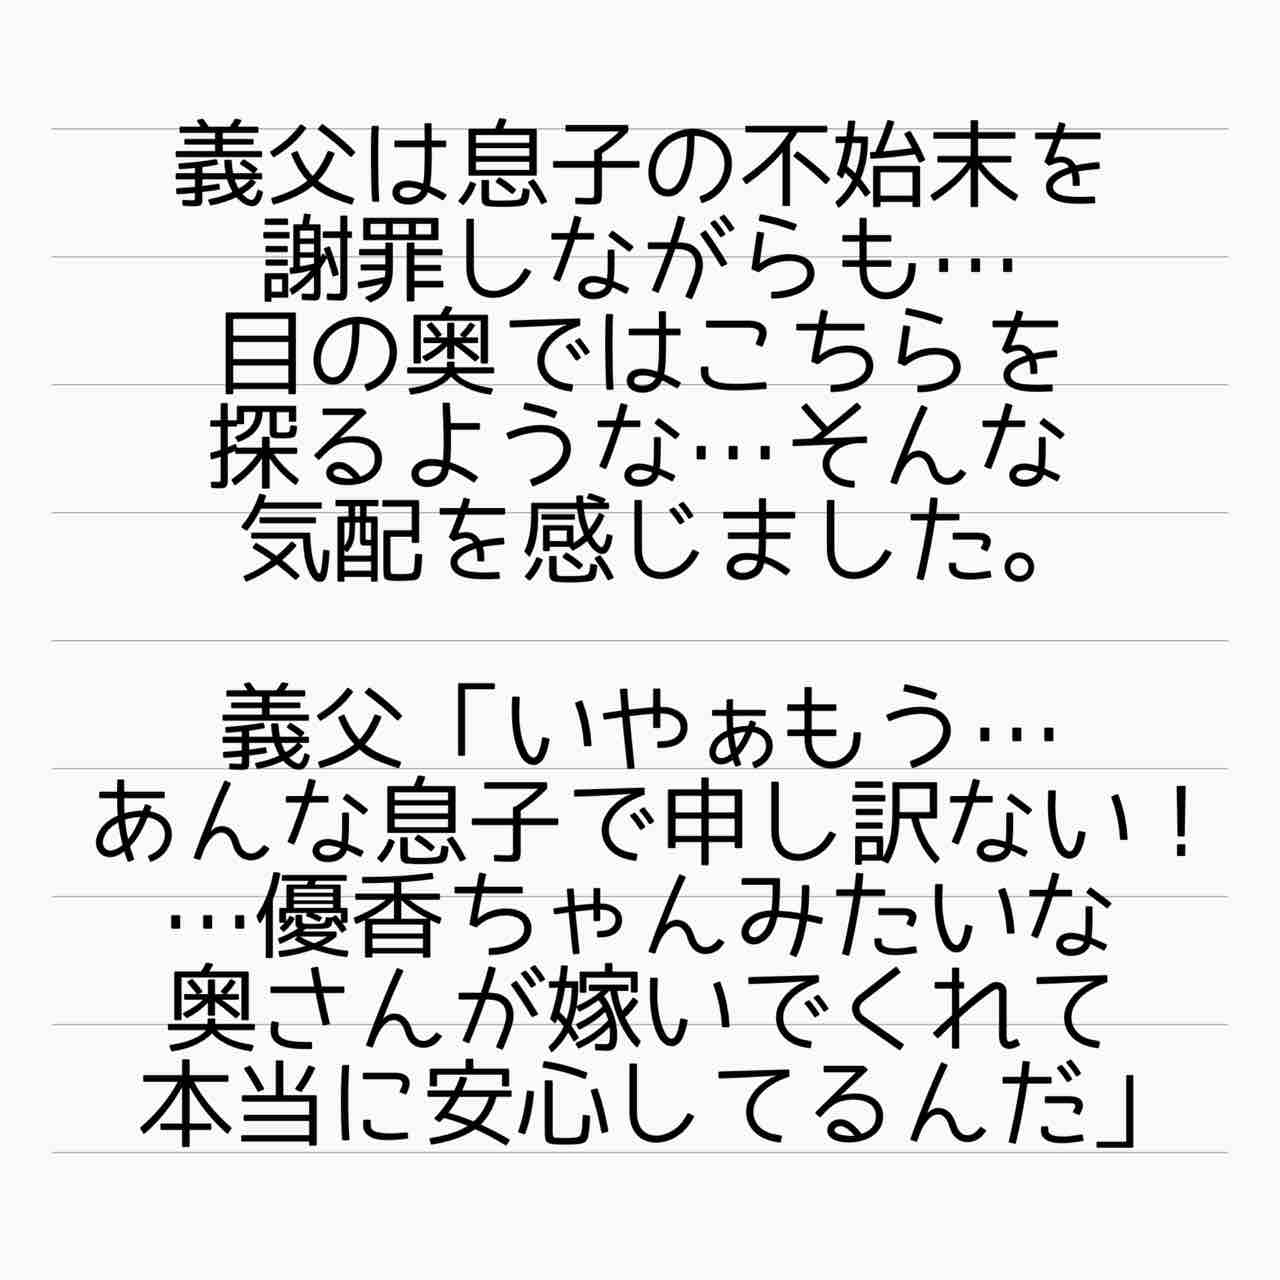 義父は息子の不始末を
謝罪しながらも…
目の奥ではこちらを
探るような…そんな
気配を感じました。
義父「いやぁもう…
あんな息子で申し訳ない！
…優香ちゃんみたいな
奥さんが嫁いでくれて
本当に安心してるんだ」